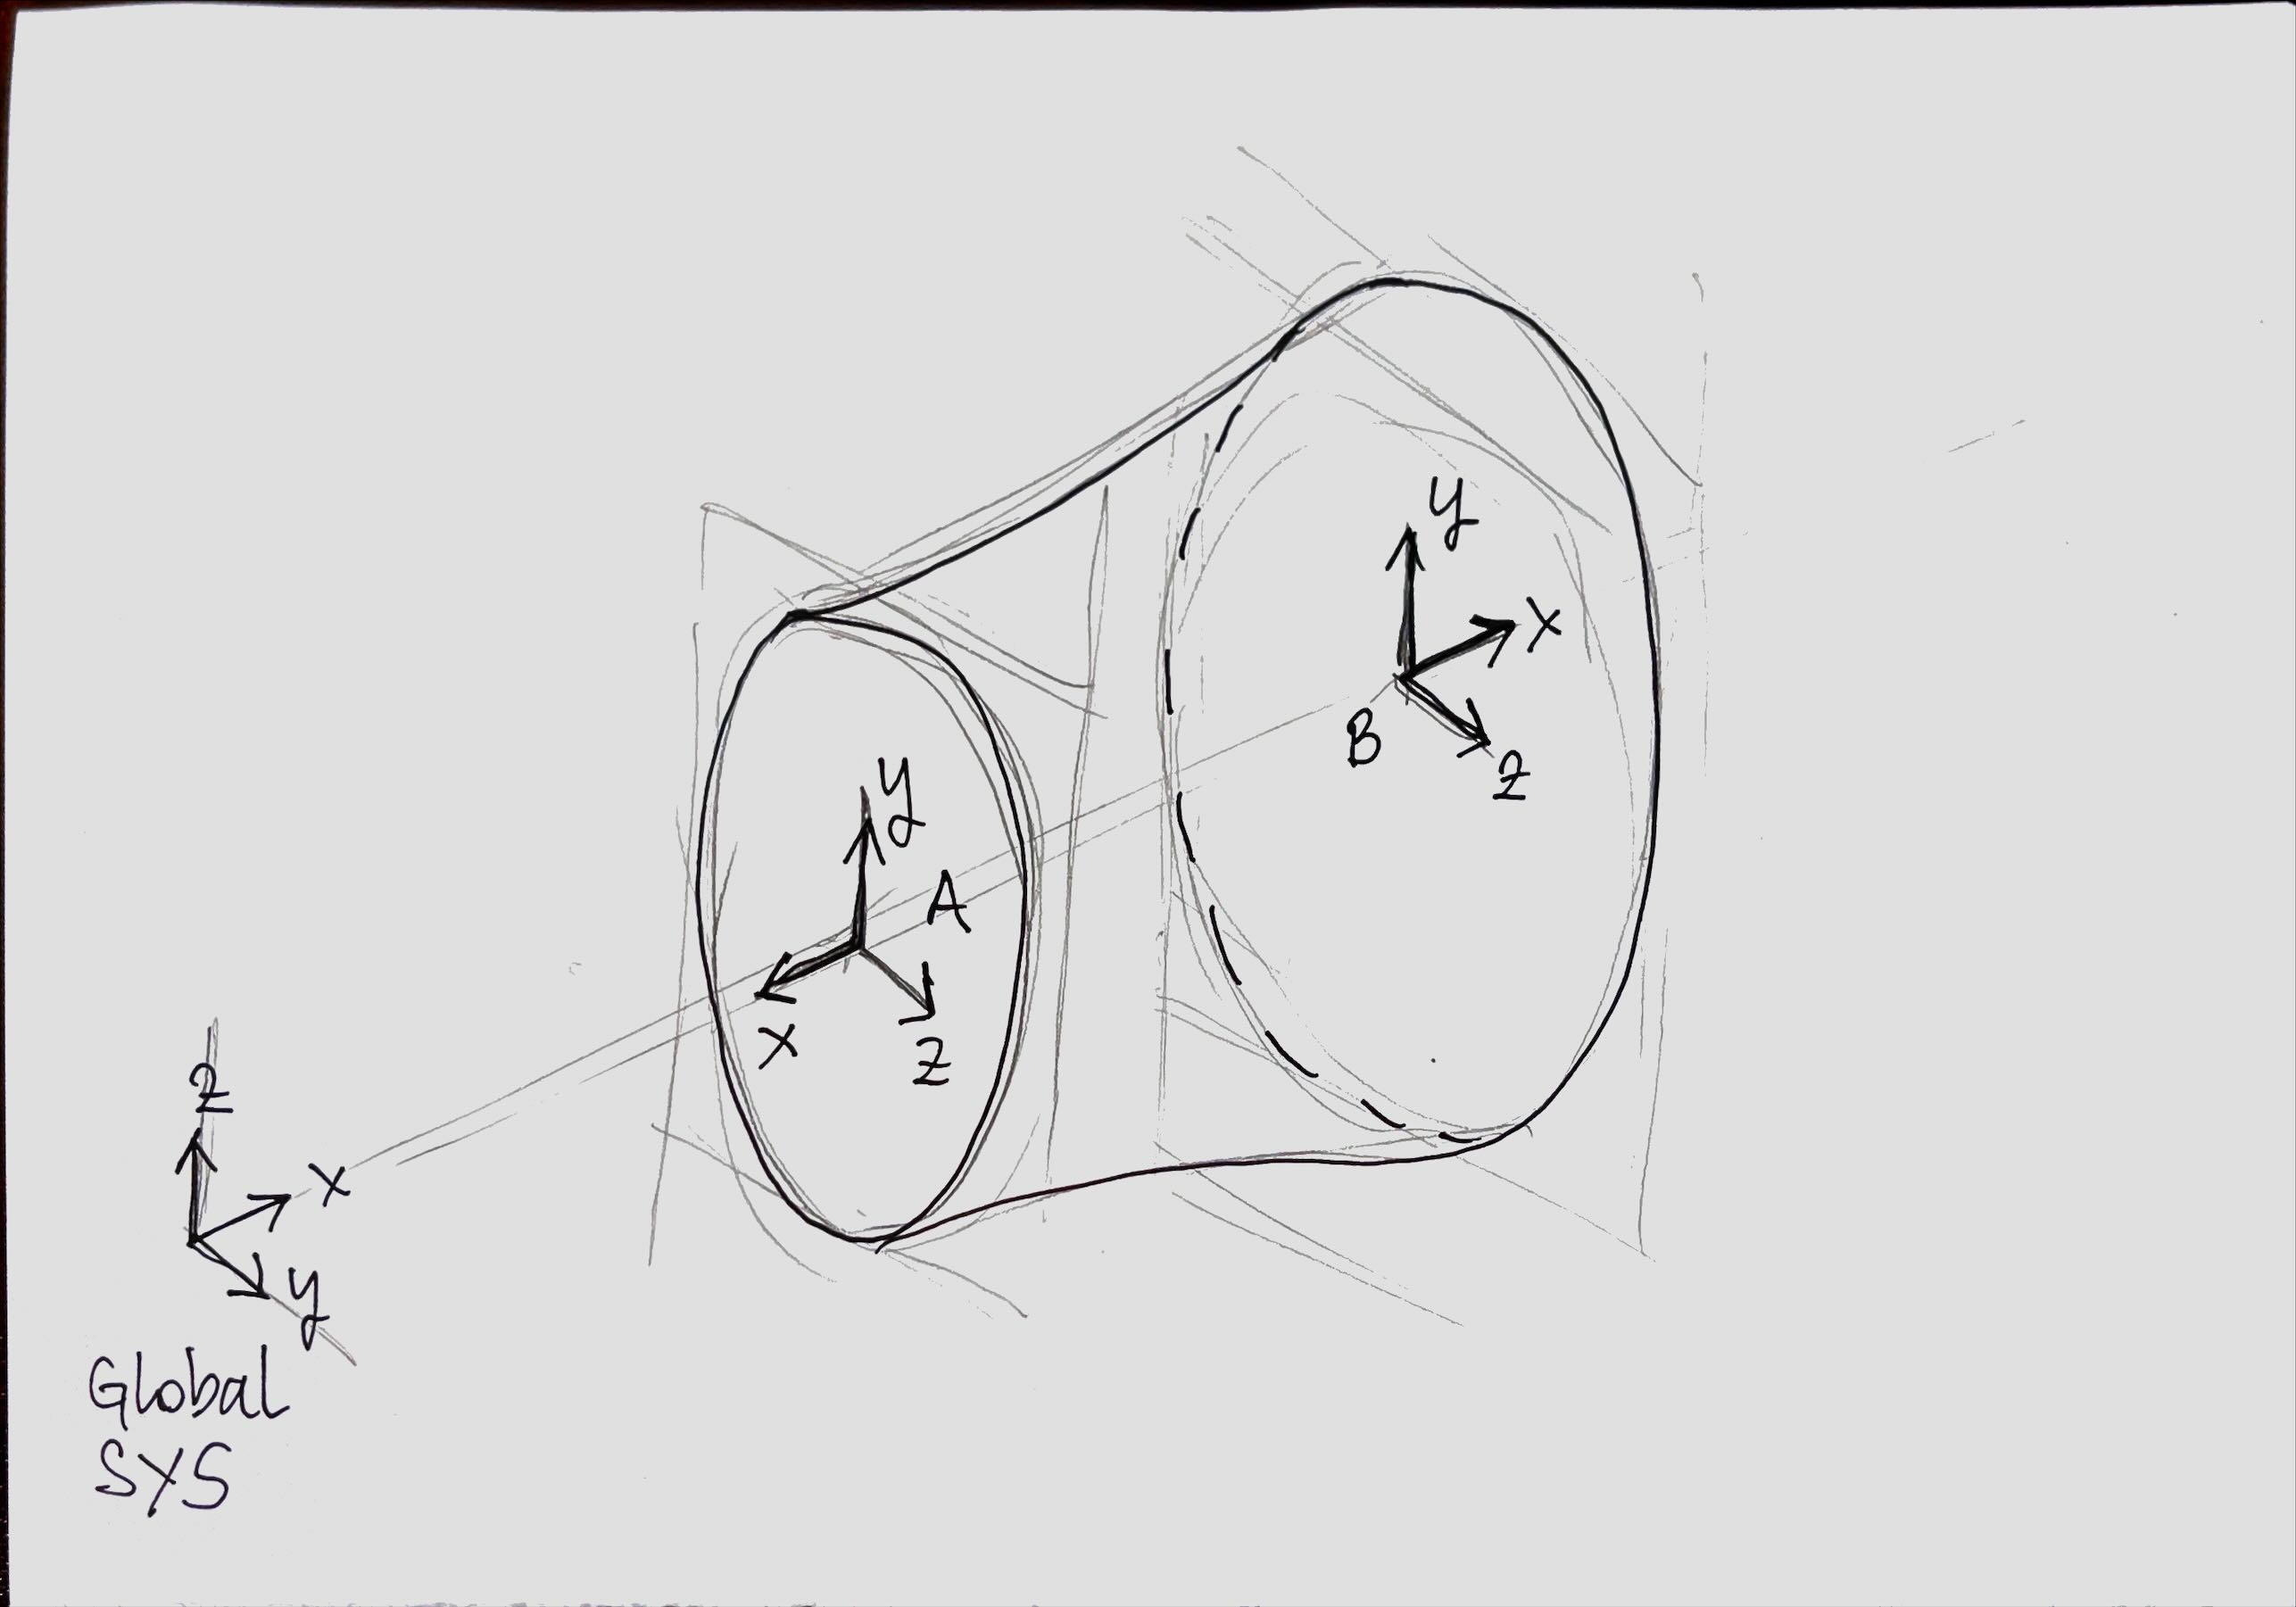 y
x
B
z
y
A
x
z
z
x
y
Global
SYS